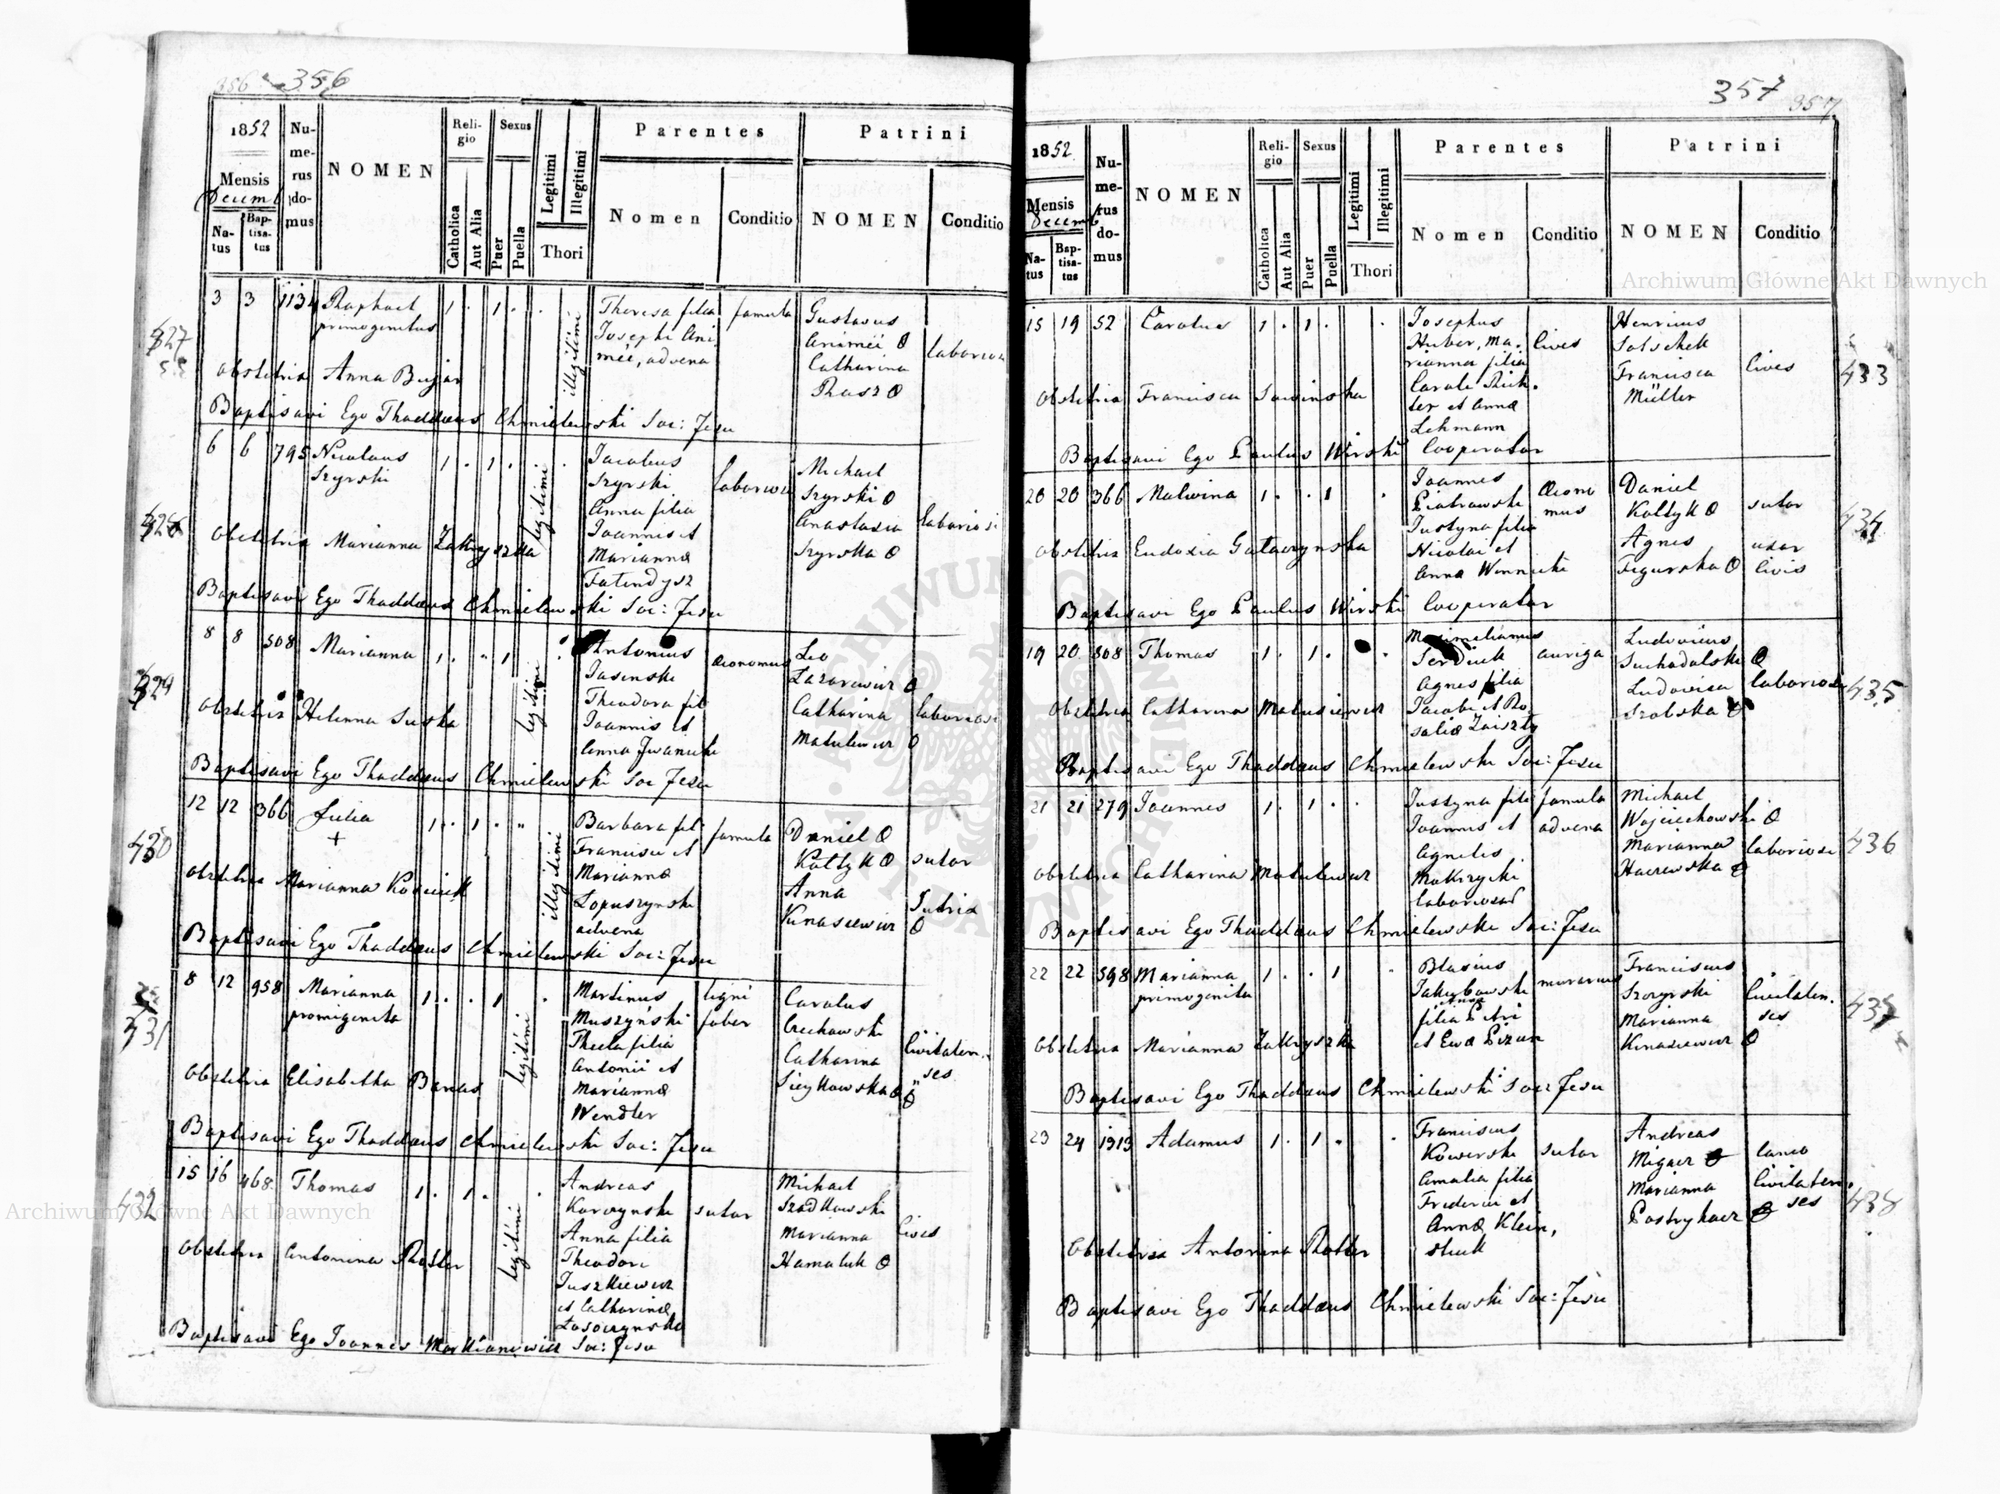 356 356
1852
Mensis
Decemb
Na-
tus
Bap-
tisa-
tus
Nu-
me-
rus
do-
mus
NOMEN
Reli-
gio
Catholica
Aut Alia
Sexus
Puer
Puella
Legitimi
Illegitimi
Thori
Parentes
Nomen
Conditio
Patrini
NOMEN
Conditio
427
3 3 1134 Raphael
primogenitus
1 . 1 . .
illegitimi
Theresa filia
Josephi
advena
famula
Gustavus
Catharina
Obstetrix Anna
Baptisavi Ego Thaddæus Chmielewski Soc: Jesu
428
6 6 795 Nicolaus
Szyrski
1 . 1 . .
legitimi
Jacobus
Szyrski
Anna filia
Joannis et
Mariannæ
Michael
Szyrski
Anastasia
Szyrska
laboriosi
Obstetrix Marianna Zakryszka
Baptisavi Ego Thaddæus Chmielewski Soc: Jesu
429
8 8 508 Marianna
1 . . 1 .
legitimi
Antonius
Jasinski
Theodora fil
Joannis et
Anna Iwanicki
œconomus
Leo
Lazarewicz
Catharina
Matulewicz
laboriosi
Obstetrix Helenna Suska
Baptisavi Ego Thaddæus Chmielewski Soc Jesu
430
12 12 366 Julia
+
1 . 1 .
illegitimi
Barbara fil
Francisci et
Mariannæ
Lopuszynski
advena
famula
Daniel
Koltyk
Anna
Kinasiewicz
sutor
Obstetrix Marianna
Baptisavi Ego Thaddæus Chmielewski Soc: Jesu
431
8 12 958 Marianna
promigenita
1 . . 1 .
legitimi
Martinus
Muszyński
Thecla filia
Antonii et
Mariannæ
Wendler
ligni
faber
Carolus
Czechowski
Catharina
Civitaten.
ses
Obstetrix Elisabetha Banas
Baptisavi Ego Thaddæus Chmielewski Soc: Jesu
432
15 16 468 Thomas
1 . 1 . .
legitimi
Andreas
Karczynski
Anna filia
Theodori
Juszkiewicz
et Catharinæ
sutor
Michael
Szadkowski
Marianna
Hamaluk
Cives
Obstetrix Antonina Rotter
Baptisavi Ego Joannes Soc: Jesu
357 357
1852
Mensis
Decemb
Na-
tus
Bap-
tisa-
tus
Nu-
me-
rus
do-
mus
NOMEN
Reli-
gio
Catholica
Aut Alia
Sexus
Puer
Puella
Legitimi
Illegitimi
Thori
Parentes
Nomen
Conditio
Patrini
NOMEN
Conditio
15 19 52 Carolus
1 . 1 . .
Josephus
Huber, Ma-
rianna filia
Caroli Rich-
ter et Annæ
Lehmann
Cives
Henricus
Francisca
Müller
Cives
433
Obstetrix Francisca Sawinska
Baptisavi Ego Paulus Wirski Cooperator
20 20 366 Malwina
1 . . 1 .
Joannes
Piotrowski
Justyna filia
Nicolai et
Annæ Winnicki
œcono
mus
Daniel
Koltyk
Agnes
Figurska
sutor
uxor
Civis
434
Obstetrix Eudoxia
Baptisavi Ego Paulus Wirski Cooperator
19 20 808 Thomas
1 . 1 . .
Maximilianus
Serdiuk
Agnes filia
Jacobi et Ro-
saliæ
auriga
Ludovicus
Suchodolski
Ludovica
Szolska
laboriosi
435
Obstetrix Catharina Matusiewicz
Baptisavi Ego Thaddæus Chmielewski Soc: Jesu
21 21 279 Joannes
1 . 1 . .
Justyna fili
Joannis et
Agnetis
Mokrzycki
famula
advena
Michael
Wojciechowski
Marianna
laboriosi
436
Obstetrix Catharina Matulewicz
Baptisavi Ego Thaddæus Chmielewski Soc: Jesu
22 22 598 Marianna
primogenita
1 . . 1 .
Blasius
Jakubowski
filia Petri
et Eva
murarius
Franciscus
Marianna
Kinasiewicz
Civitaten.
ses
437
Obstetrix Marianna Zakryszka
Baptisavi Ego Thaddæus Chmielewski Soc: Jesu
23 24 1313 Adamus
1 . 1 . .
Franciscus
Kowerski
Amalia filia
Friderici et
Annæ Klein,
sutor
Andreas
Marianna
lanio
Civitaten.
ses
438
Obstetrix Antonina Rotter
Baptisavi Ego Thaddæus Chmielewski Soc: Jesu
Archiwum Główne Akt Dawnych
Archiwum Główne Akt Dawnych
ARCHIWUM GŁÓWNE AKT DAWNYCH